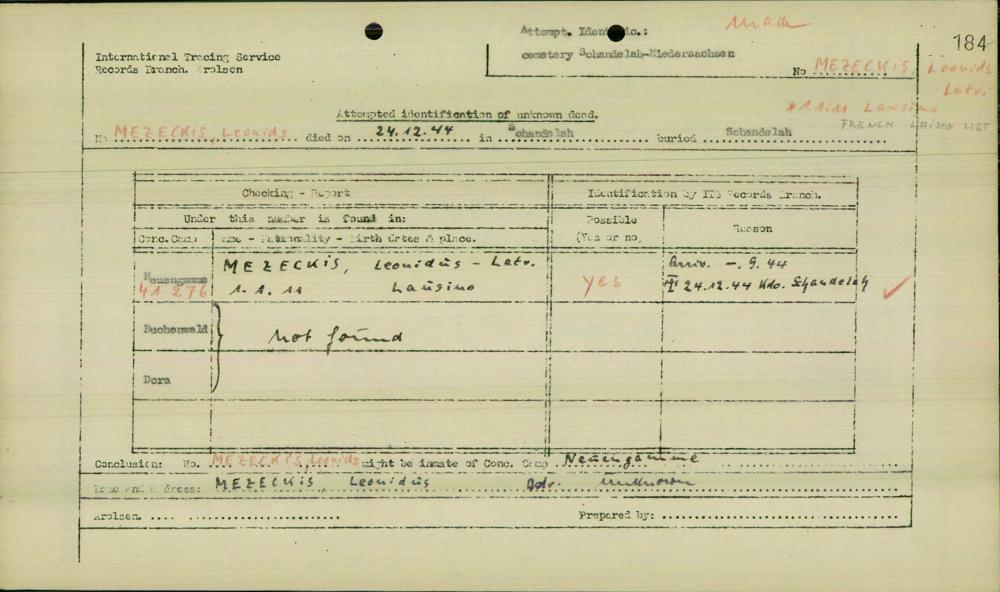 Attempt. Identific.: made
184
cemetary Schandelah-Niedersachsen
International Tracing Service
Records Branch. Arolsen
No MEZECKIS, Leonids
Latv.
*1.1.11 Lausino
Attempted identification of unknown dead.
FRENCH LIAISON LIST
No MEZECKIS, Leonids died on 24.12.44 in Schandelah buried Schandelah
Checking - Report Identification by ITS Records Branch.
Under this number is found in: Possible Reason
Conc.Camp Name - Nationality - Birth dates & place. (Yes or no)
Neuengamme MEZECKIS, Leonidus - Latv. Arriv. -. 9. 44
41 276 1. 1. 11 Lausino yes 24.12.44 Kdo. Schandelah
Buchenwald not found
Dora
Conclusion: No. MEZECKIS, Leonids might be inmate of Conc. Camp Neuengamme
Name and address: MEZECKIS, Leonidus Adr. unknown
Arolsen. Prepared by: